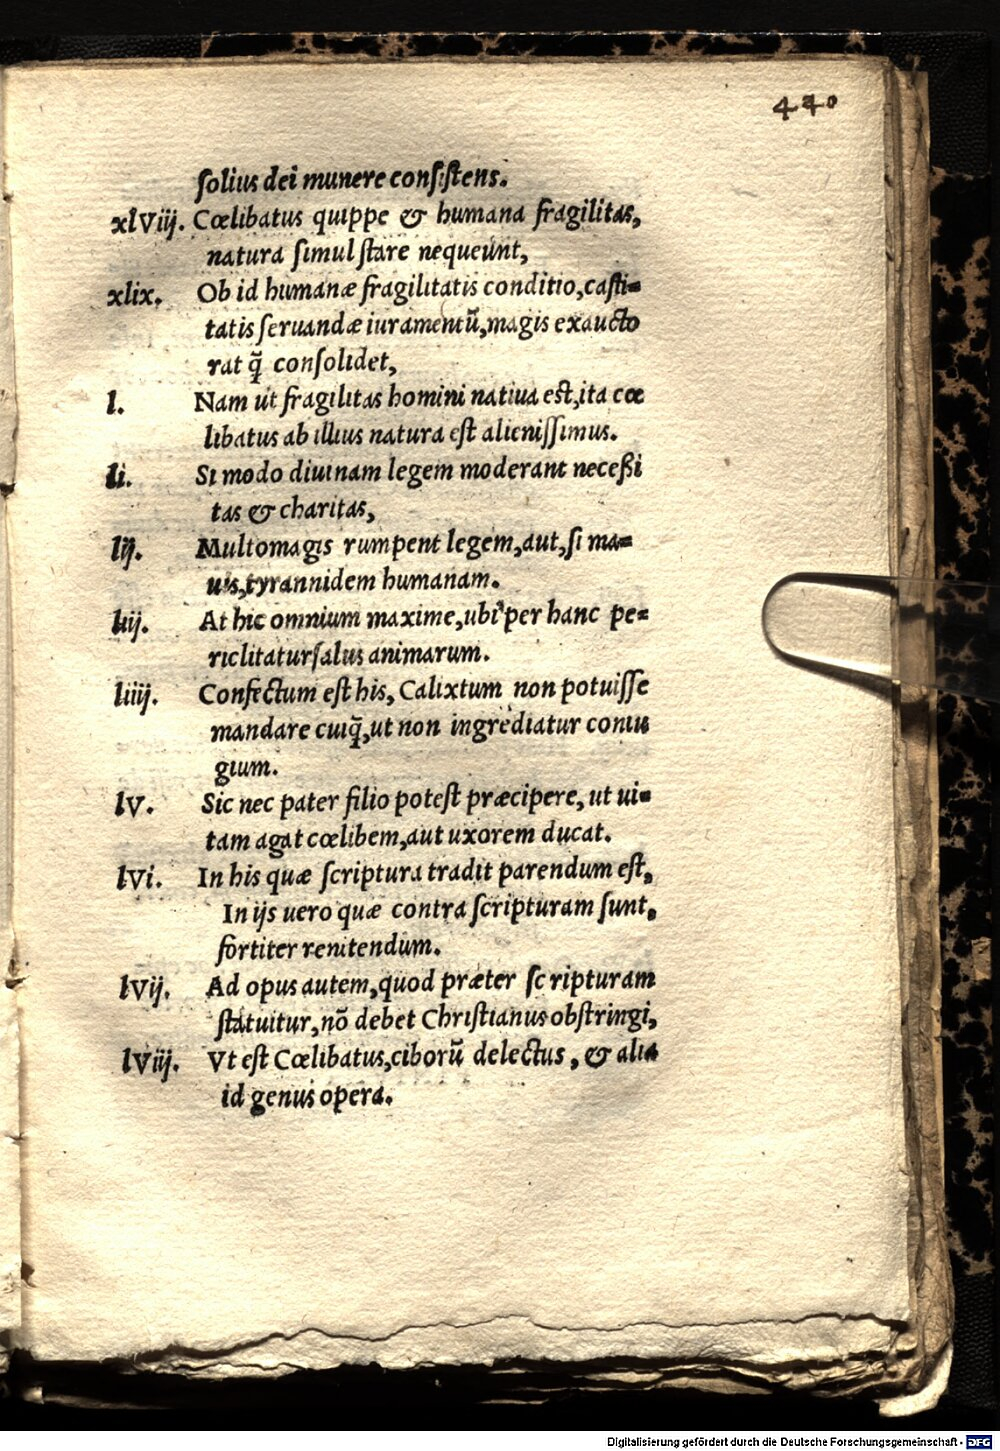 440
solius dei munere consistens.
xlviij. Cœlibatus quippe & humana fragilitas,
natura simul stare nequeunt,
xlix. Ob id humanæ fragilitatis conditio, casti=
tatis seruandæ iuramentũ, magis exaucto
rat q̃ consolidet,
l. Nam ut fragilitas homini natiua est, ita cœ
libatus ab illius natura est alienissimus.
li. Si modo diuinam legem moderant neceßi
tas & charitas,
lij. Multomagis rumpent legem, aut, si ma=
uis, tyrannidem humanam.
liij. At hic omnium maxime, ubi per hanc pe=
riclitatur salus animarum.
liiij. Confectum est his, Calixtum non potuisse
mandare cuiq̃, ut non ingrediatur coniu
gium.
lv. Sic nec pater filio potest præcipere, ut ui=
tam agat cœlibem, aut uxorem ducat.
lvi. In his quæ scriptura tradit parendum est,
In ijs uero quæ contra scripturam sunt,
fortiter renitendum.
lvij. Ad opus autem, quod præter scripturam
statuitur, nõ debet Christianus obstringi,
lviij. Vt est Cœlibatus, ciborũ delectus, & alia
id genus opera.
Digitalisierung gefördert durch die Deutsche Forschungsgemeinschaft - DFG